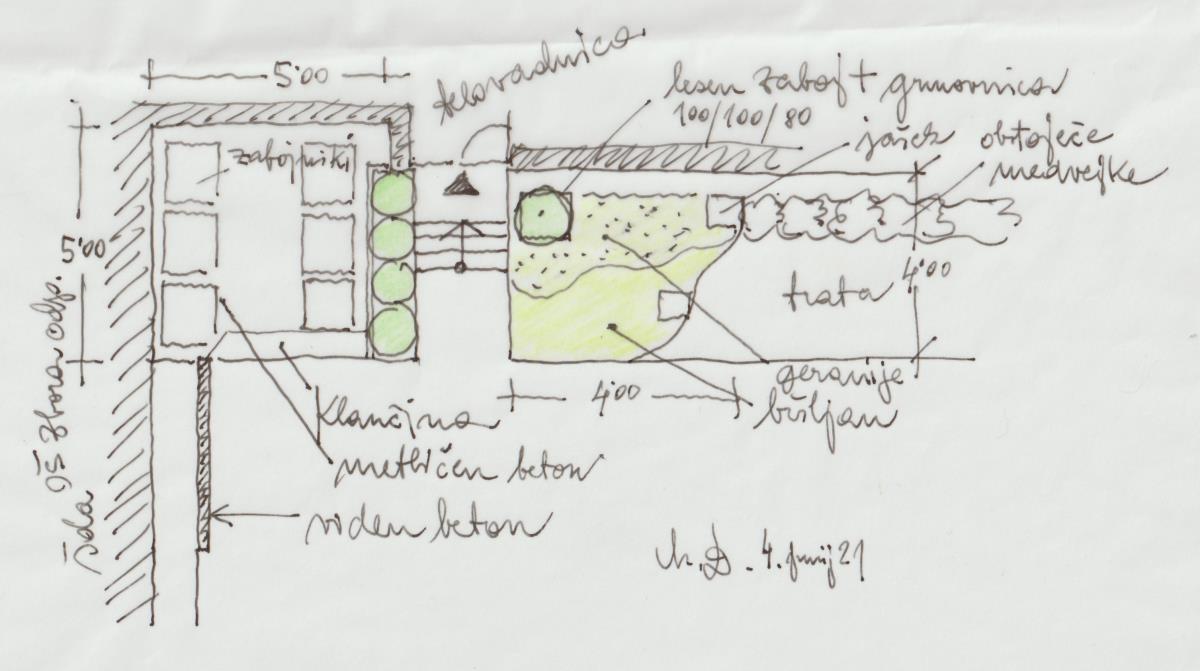 5'00
telovadnica
lesen zaboj + grmovnica
100/100/80
jašek
obstoječe
medvejke
zabojniki
5'00
4'00
trata
geranije
bršljan
4'00
klančina
metličen beton
viden beton
šola OŠ Zbora odp.
M.D. 4. junij 21